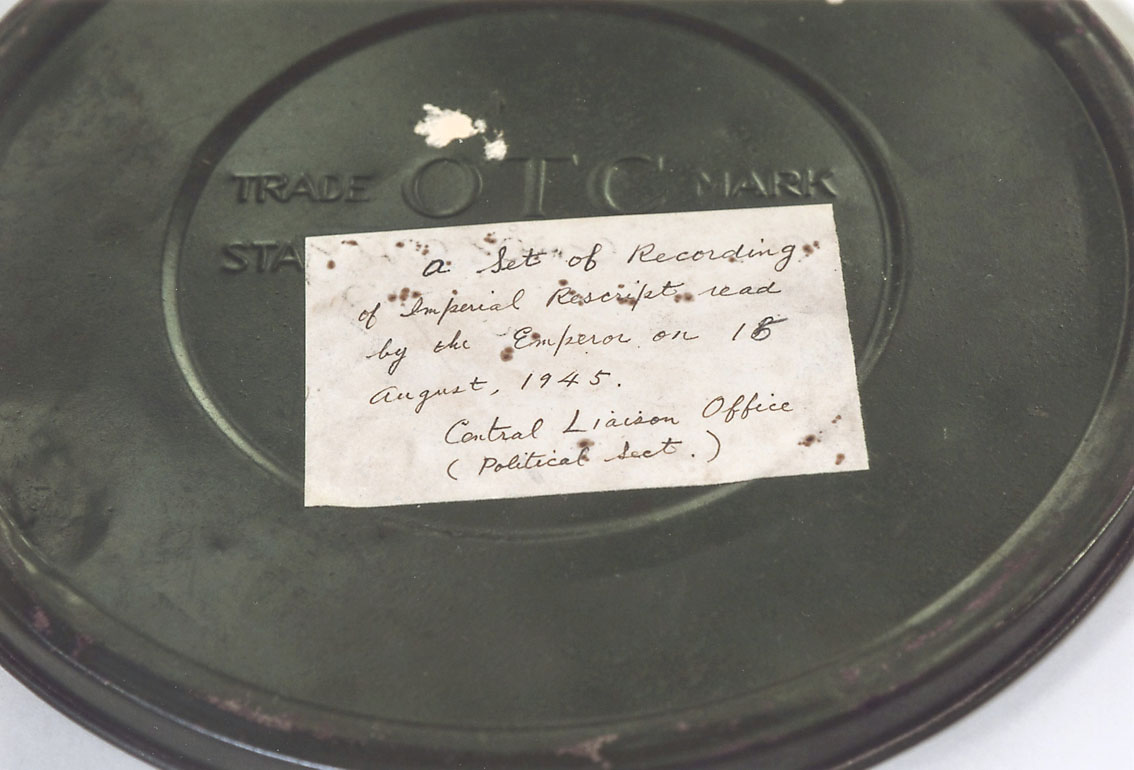 TRADE OTC MARK
STA
a Set of Recording
of Imperial Rescript read
by the Emperor on 15
August, 1945.
Central Liaison Office
(Political Sect.)